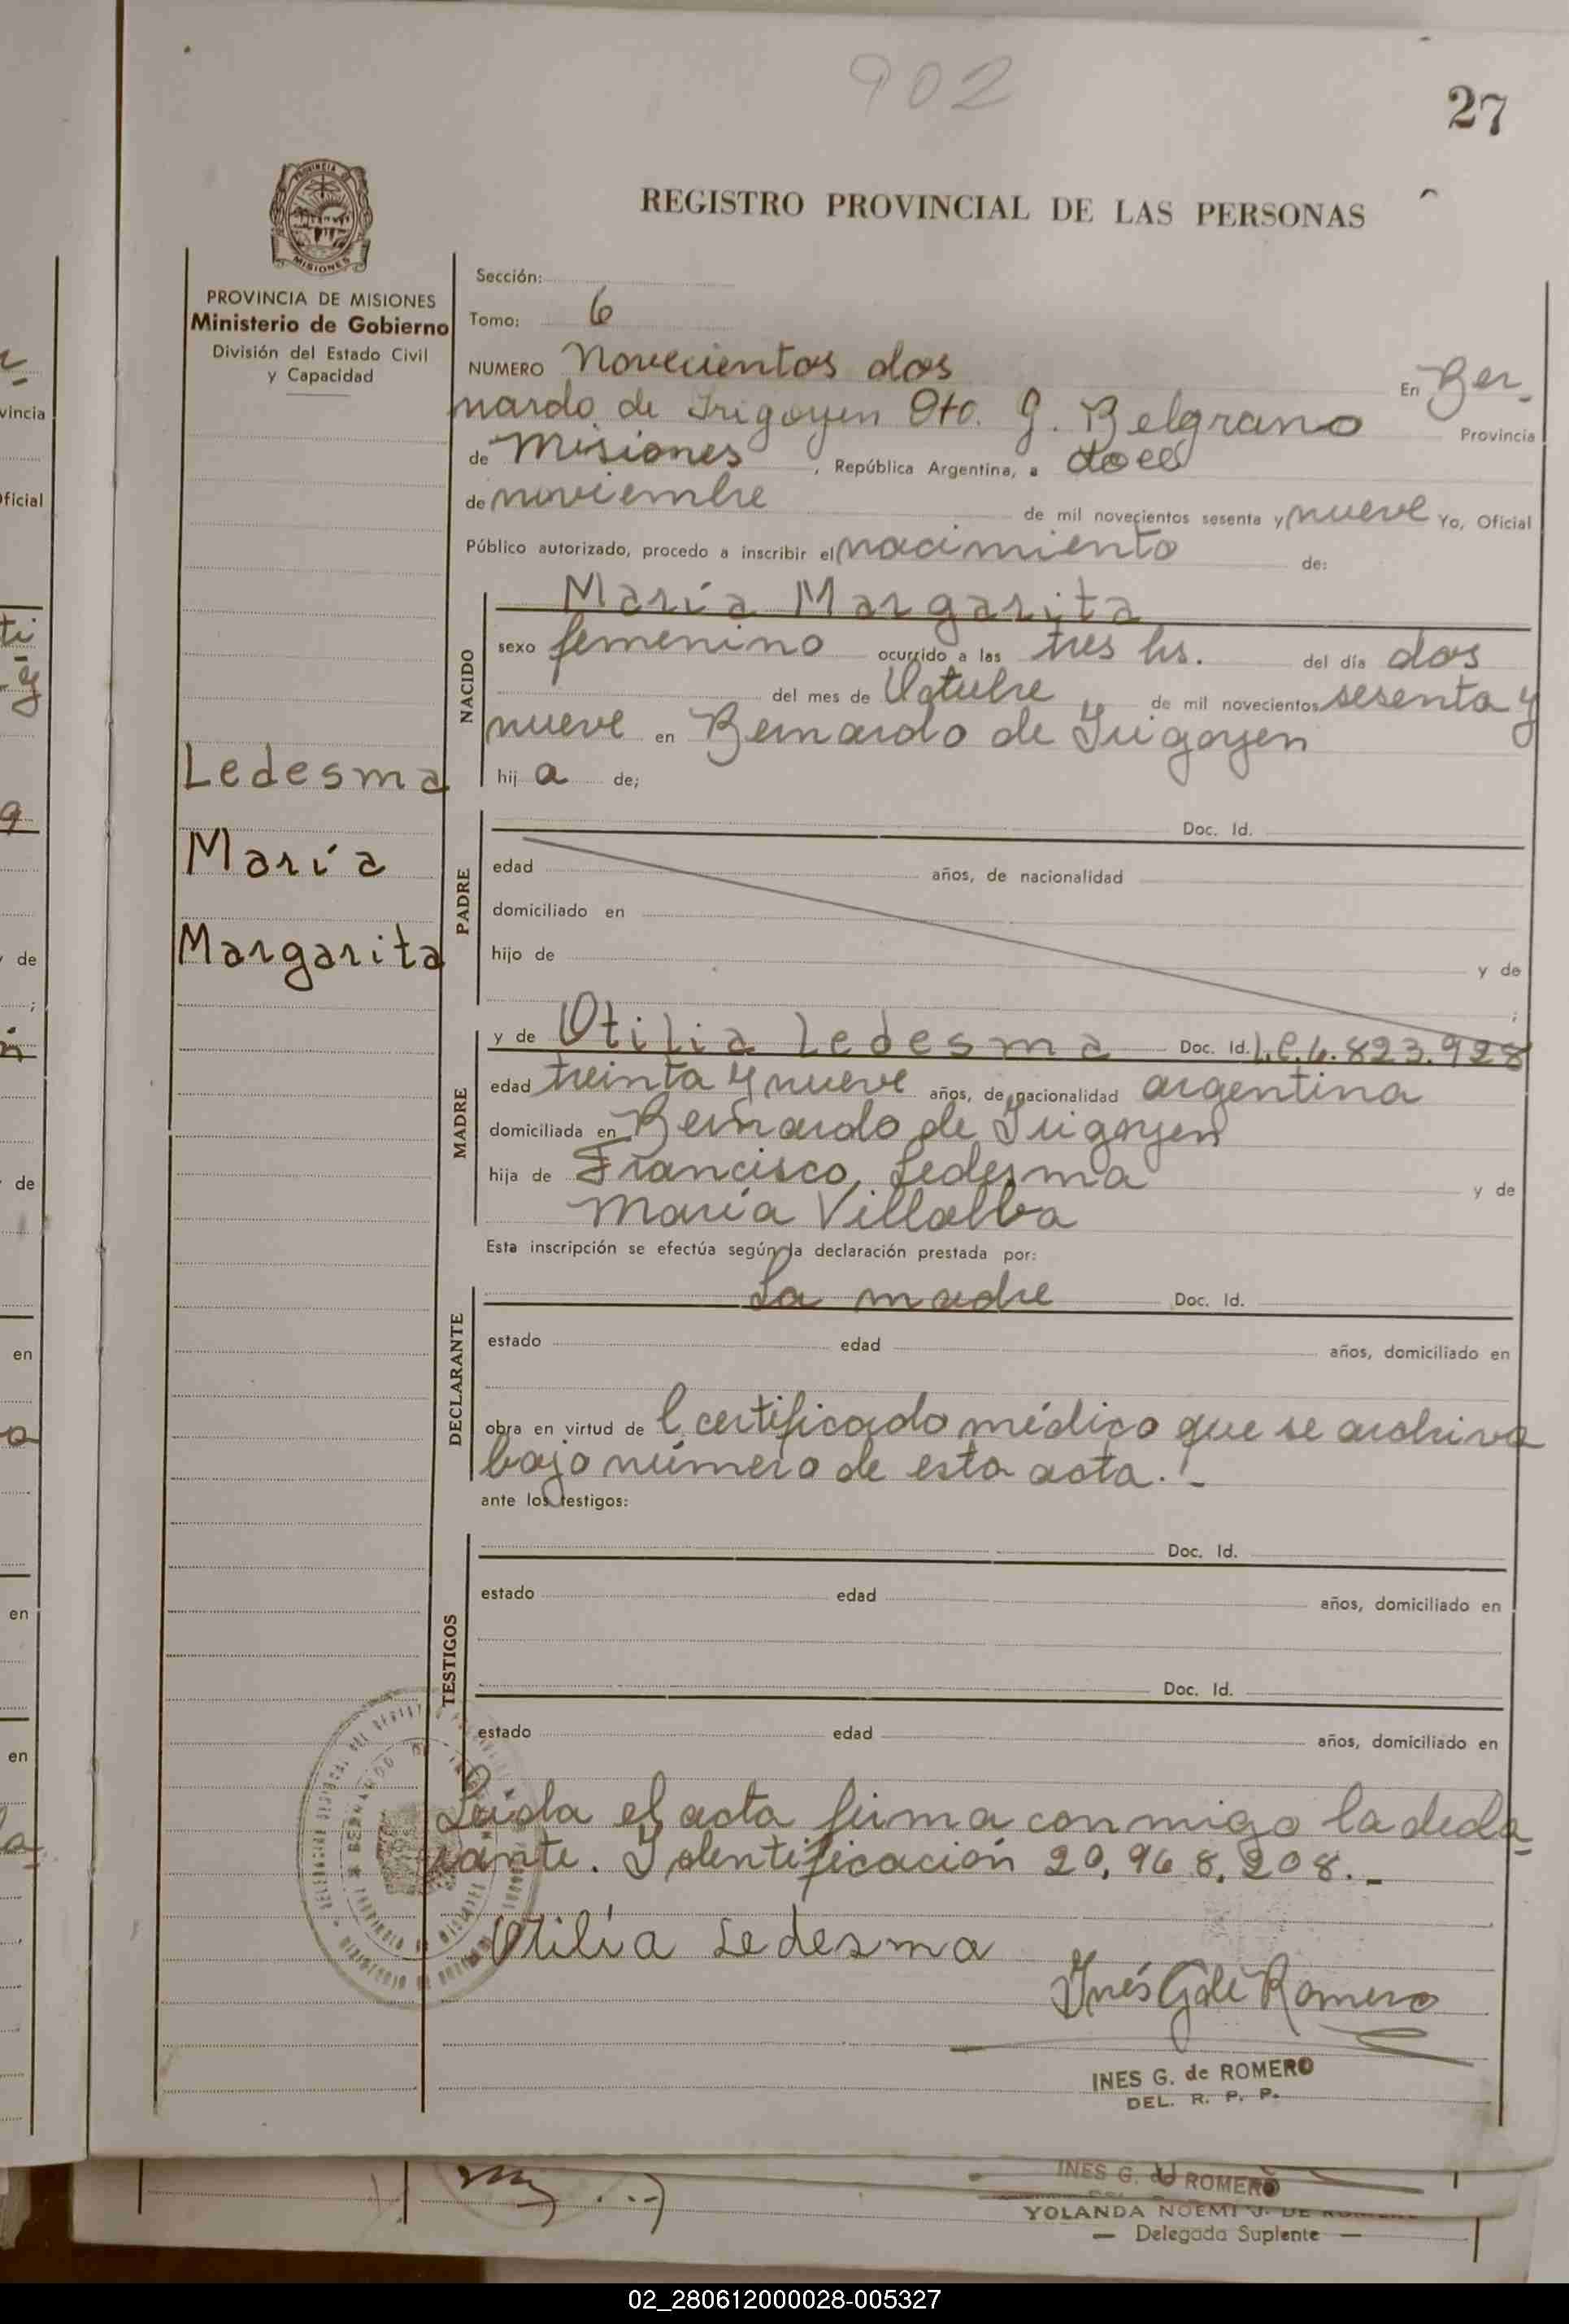 902
27
REGISTRO PROVINCIAL DE LAS PERSONAS
PROVINCIA DE MISIONES
Ministerio de Gobierno
División del Estado Civil
y Capacidad
Sección:
Tomo: 6
NUMERO Novecientos dos En Ber-
nardo de Irigoyen Dto. G. Belgrano Provincia
de Misiones, República Argentina, a doce
de noviembre de mil novecientos sesenta y nueve Yo, Oficial
Público autorizado, procedo a inscribir el nacimiento de:
NACIDO
María Margarita
sexo femenino ocurrido a las tres hs. del día dos
del mes de Octubre de mil novecientos sesenta y
nueve en Bernardo de Irigoyen
hij a de;
Ledesma
María
Margarita
PADRE
Doc. Id.
edad años, de nacionalidad
domiciliado en
hijo de y de
;
MADRE
y de Otilia Ledesma Doc. Id. L.C. 6.823.928
edad treinta y nueve años, de nacionalidad argentina
domiciliada en Bernardo de Irigoyen
hija de Francisco Ledesma y de
María Villalba
Esta inscripción se efectúa según la declaración prestada por:
DECLARANTE
La madre Doc. Id.
estado edad años, domiciliado en
obra en virtud de l certificado médico que se archiva
bajo número de esta acta.-
ante los testigos:
TESTIGOS
Doc. Id.
estado edad años, domiciliado en
Doc. Id.
estado edad años, domiciliado en
Leída el acta firma conmigo la decla-
rante. Identificación 20.968.208.-
Otilia Ledesma
Inés G de Romero
INES G. de ROMERO
DEL. R. P. P.
INES G. de ROMERO
YOLANDA NOEMI J. DE
— Delegada Suplente —
02_280612000028-005327